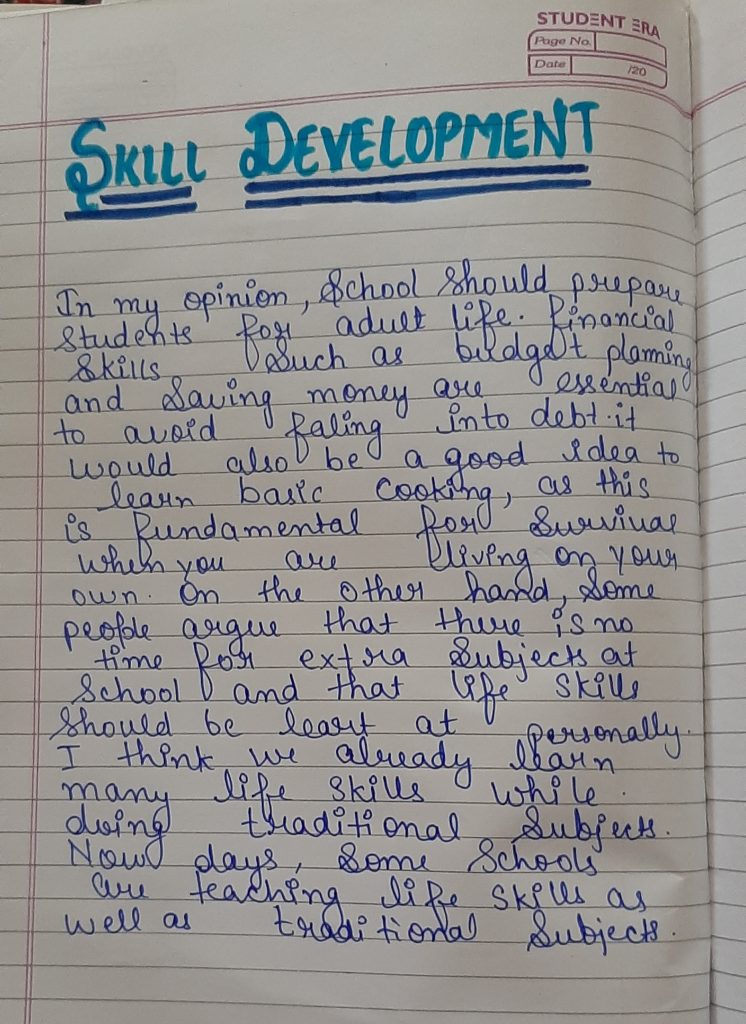 STUDENT ERA
Page No.
Date /20
SKILL DEVELOPMENT
In my opinion, School should prepare
students for adult life. Financial
skills such as buldget planning
and saving money are essential
to avoid faling into debt. it
would also be a good idea to
learn basic cooking, as this
is fundamental for survival
when you are living on your
own. On the other hand, some
people argue that there is no
time for extra subjects at
school and that life skills
should be leart at personally.
I think we already learn
many life skills while
doing traditional subjects.
Now days, some schools
are teaching life skills as
well as traditional subjects.